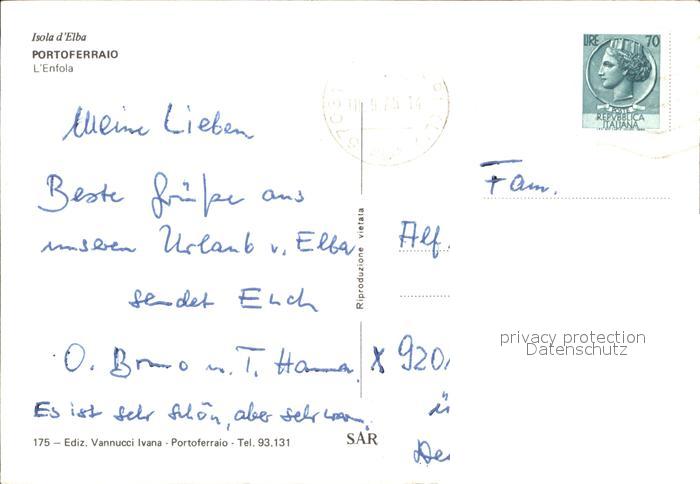 Isola d'Elba
PORTOFERRAIO
L'Enfola
LIRE 70
POSTE
REPVBBLICA
ITALIANA
Meine Lieben
Beste Grüße aus
unseren Urlaub v. Elba
sendet Euch
O. Bruno u. T. Hanna.
Es ist sehr schön, aber sehr warm.
Riproduzione vietata
Fam.
Alf.
X 920
privacy protection
Datenschutz
175 — Ediz. Vannucci Ivana - Portoferraio - Tel. 93.131
SAR